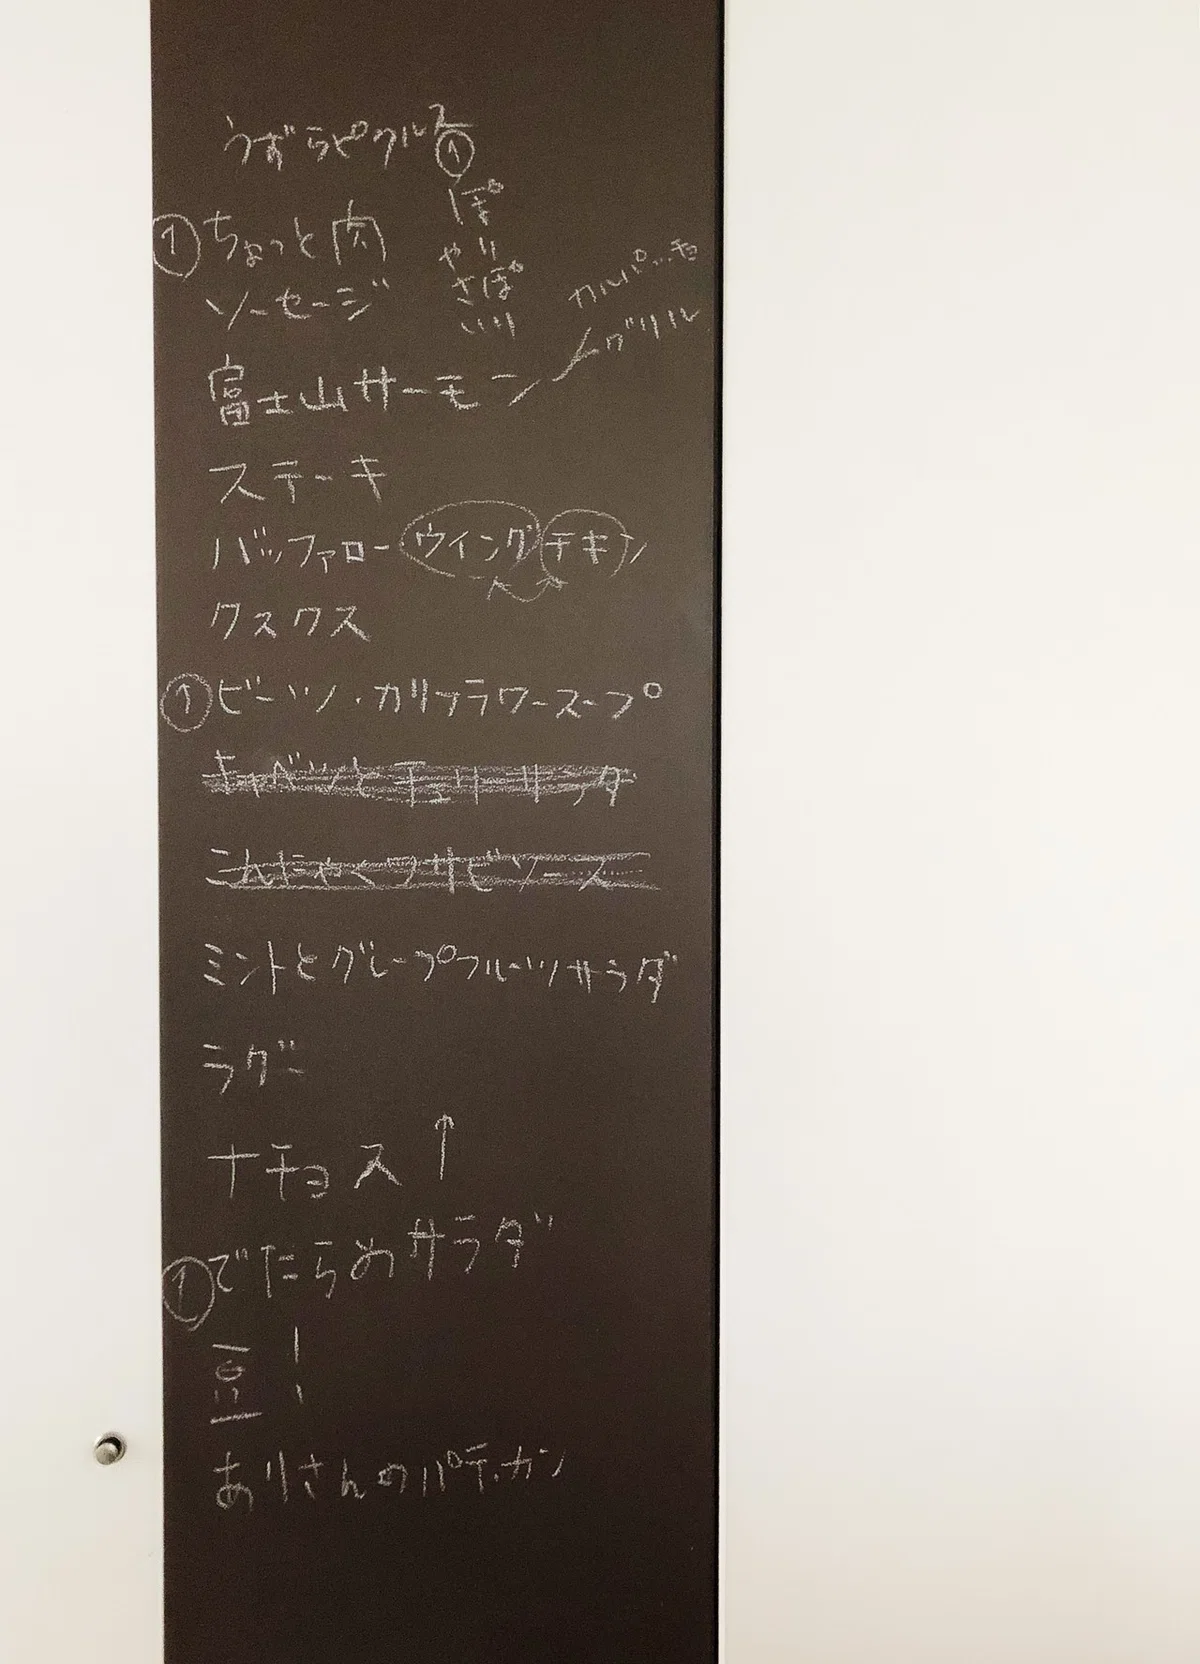 うずらピクルス ↑
ぽ
① ちょっと肉
やり
さぽ
ソーセージ
いり
カルパッチョ
グリル
富士山サーモン
ステーキ
バッファローウイングチキン
クスクス
↑ ビーツ・カリフラワースープ
キャベツとチェリーサラダ
こんにゃくワサビソース
ミントとグレープフルーツサラダ
ラグー
ナチョス ↑
↑ でたらめサラダ
豆!
ありさんのパテ・カン